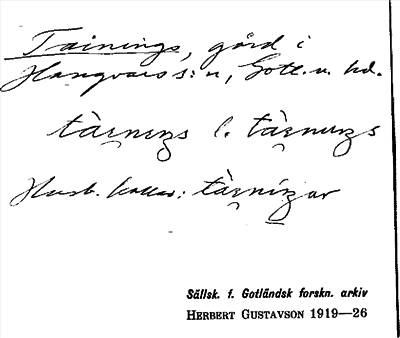 Tainings, gård i
Hangvars s:n, Gotl. n. hd.
tàı̯nıŋs l. tàı̯nuŋs
Husb. kallas: tàı̯niŋar
Sällsk. f. Gotländsk forskn. arkiv
HERBERT GUSTAVSON 1919—26